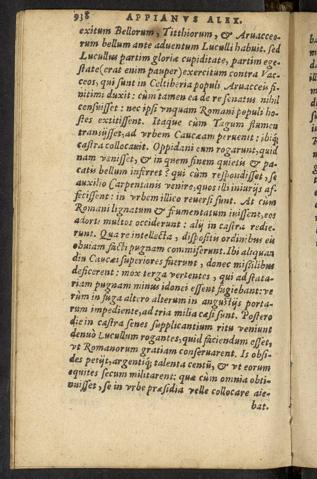 938 APPIANVS ALEX.
exitum Bellorum, Titthiorum, & Aruacceo-
rum bellum ante aduentum Luculli habuit. sed
Lucullus partim gloriæ cupiditate, partim ege-
state (erat enim pauper) exercitum contra Vac-
ceos, qui sunt in Celtiberia populi Aruacceis fi-
nitimi duxit: cùm tamen ea de re senatus nihil
censuisset: nec ipsi vnquam Romani populi ho-
stes extitissent. Itaque cùm Tagum flumen
transijsset, ad vrbem Caucæam peruenit: ibiq́;
castra collocauit. Oppidani eum rogarunt, quid
nam venisset, & in quem finem quietis & pa-
catis bellum inferret? qui cùm respondisset, se
auxilio Carpentanis venire, quos illi iniurijs af-
fecissent: in vrbem illico reuersi sunt. At cùm
Romani lignatum & frumentatum iuissent, eos
adorti multos occiderunt: alij in castra redie-
runt. Qua re intellecta, dispositis ordinibus eu
obuiam facti pugnam commiserunt. Ibi aliquan
diu Caucæi superiores fuerunt, donec missilibus
deficerent: mox terga vertentes, qui ad stata-
riam pugnam minus idonei essent fugiebant: ve
rùm in fuga altero alterum in angustijs porta-
rum impediente, ad tria milia cæsi sunt. Postero
die in castra senes supplicantium ritu veniunt
denuò Lucullum rogantes, quid faciendum esset,
vt Romanorum gratiam conseruarent. Is obsi-
des petijt, argentiq́; talenta centũ, & vt eorum
equites secum militarent: quæ cùm omnia obti-
nuisset, se in vrbe præsidia velle collocare aie-
bat.